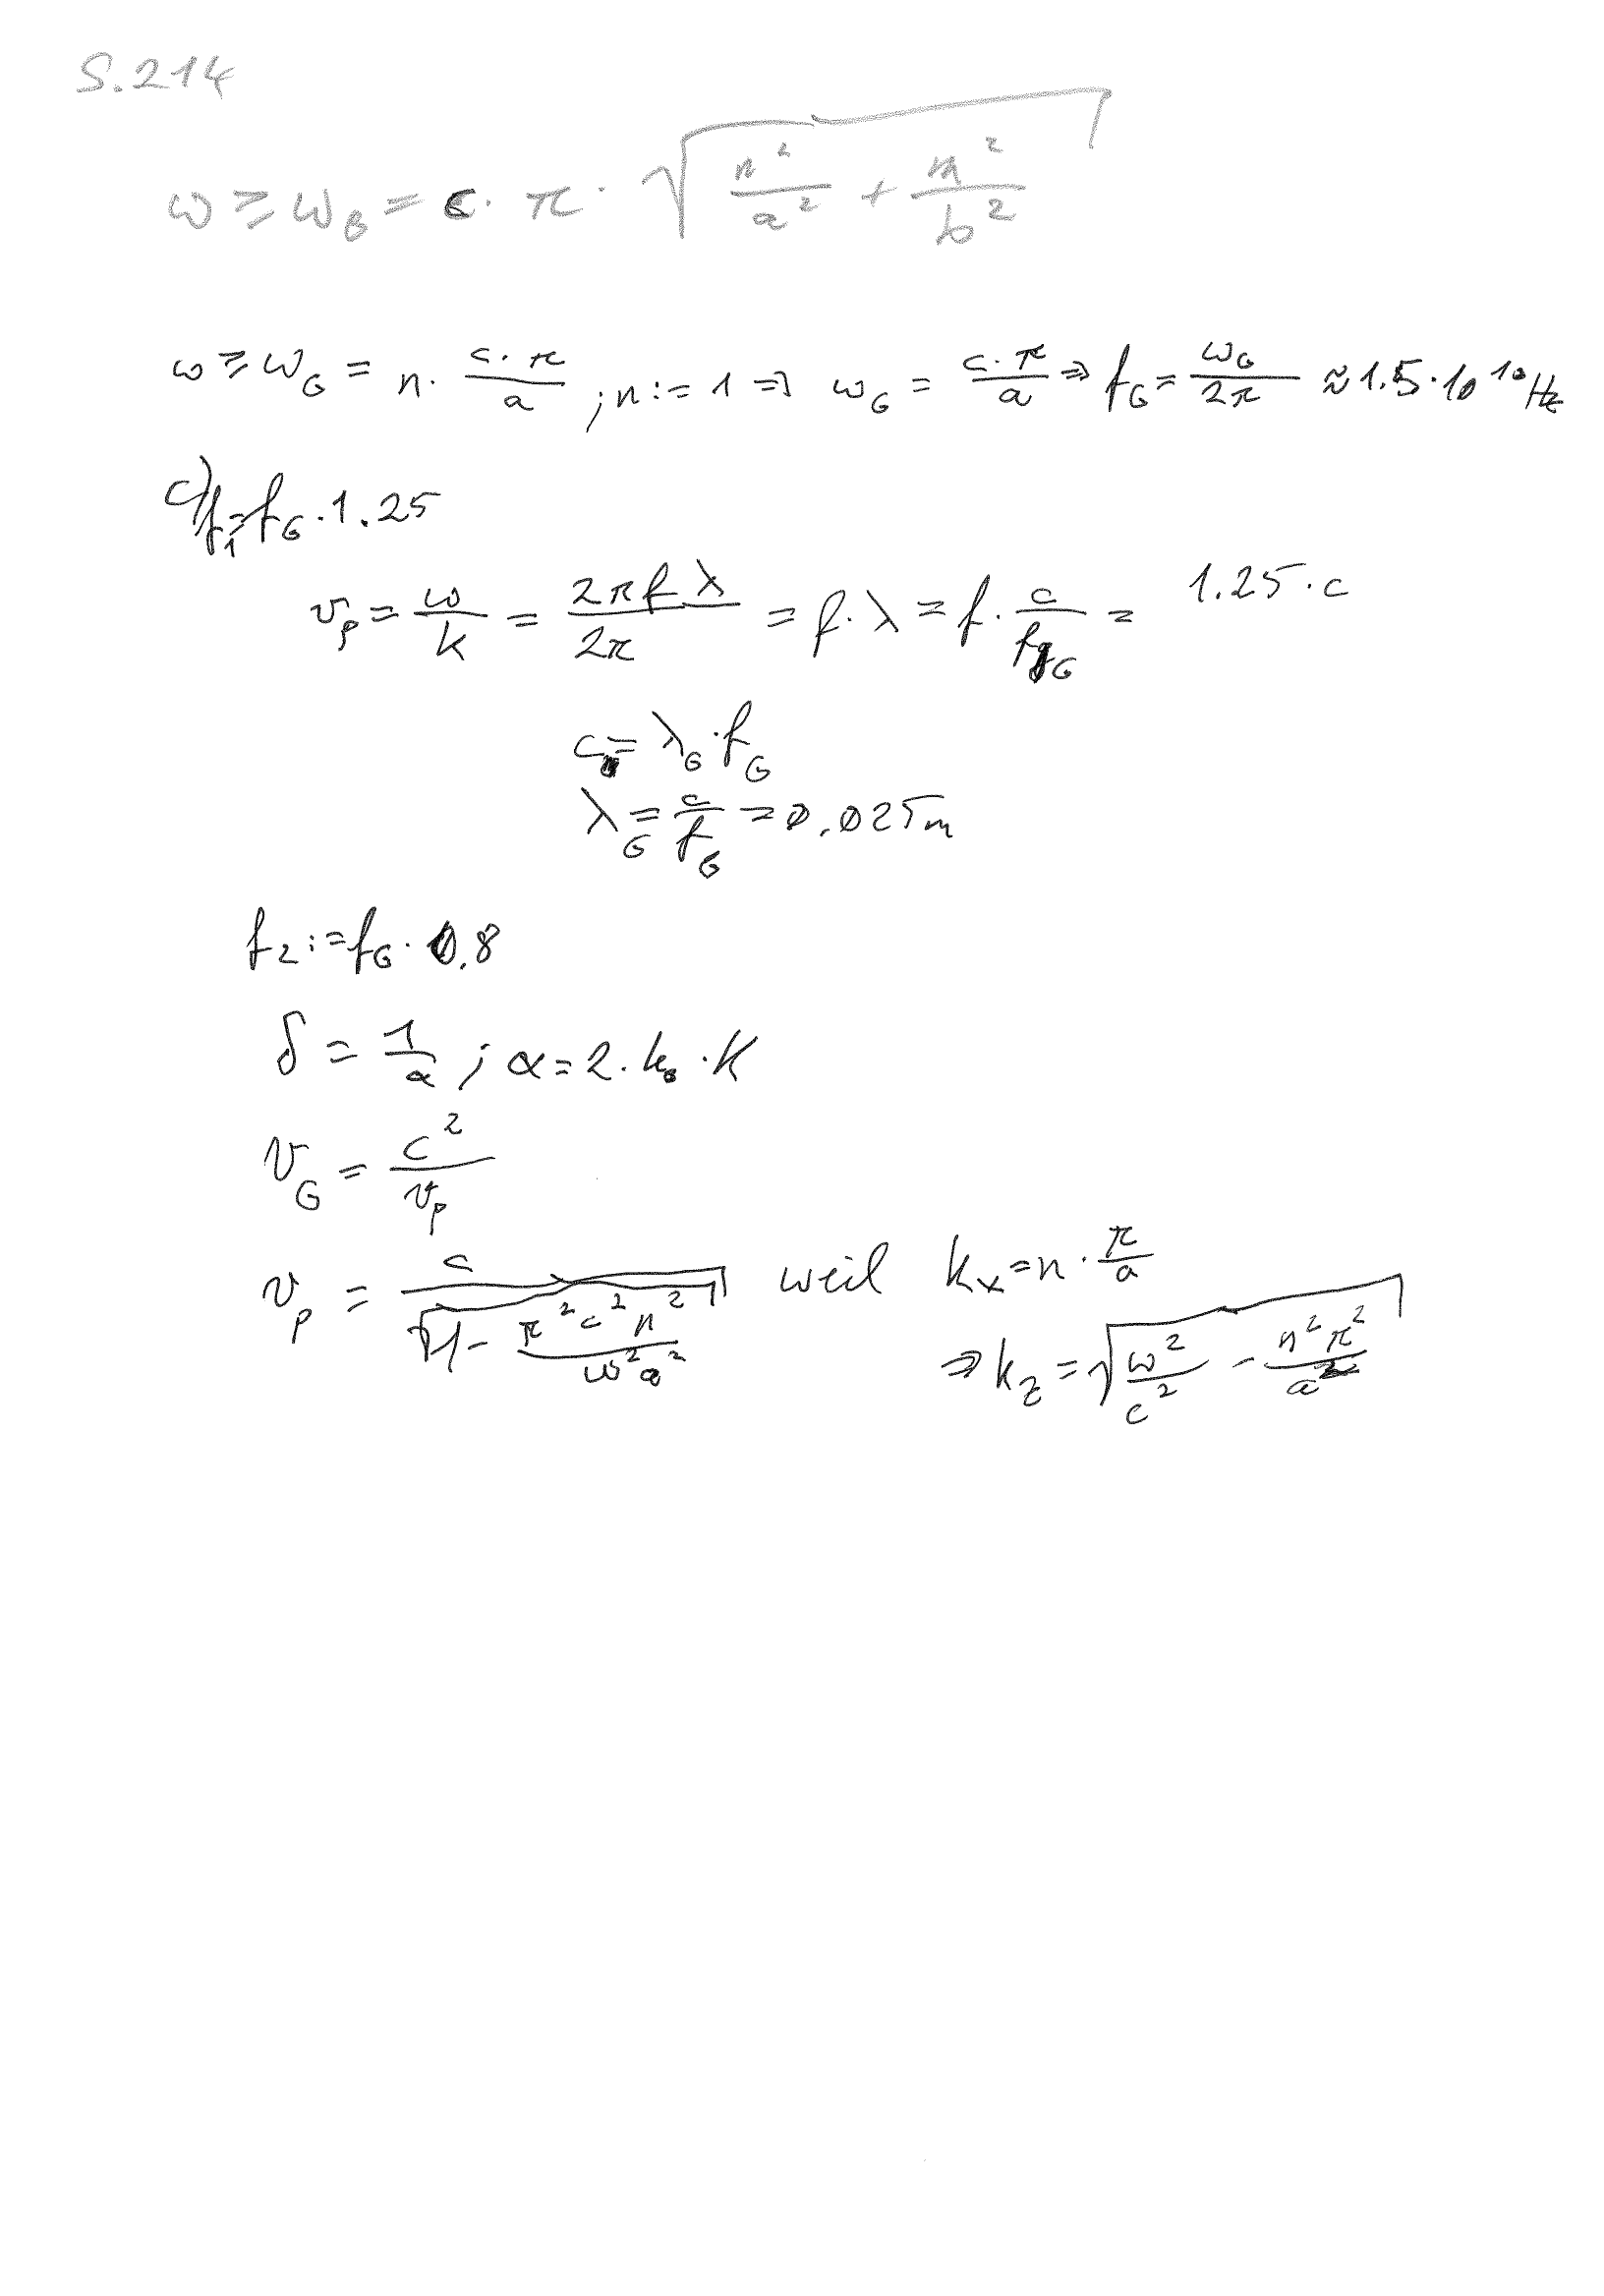 S.214
ω ≥ ω_G = c · π · √(n²/a² + m²/b²)
ω ≥ ω_G = n · (c · π)/a ; n := 1 ⇒ ω_G = (c · π)/a ⇒ f_G = ω_G/(2π) ≈ 1.5 · 10^10 Hz
c) f_1 = f_G · 1.25
v_p = ω/k = (2π f λ)/(2π) = f · λ = f · c/f_G = 1.25 · c
c = λ_G · f_G
λ_G = c/f_G = 0.025m
f_2 := f_G · 0.8
δ = 1/α ; α = 2 · k_0 · K
v_G = c²/v_p
v_p = c/√(1 - (π² c² n²)/(ω² a²)) weil k_x = n · π/a
⇒ k_z = √(ω²/c² - (n² π²)/a²)